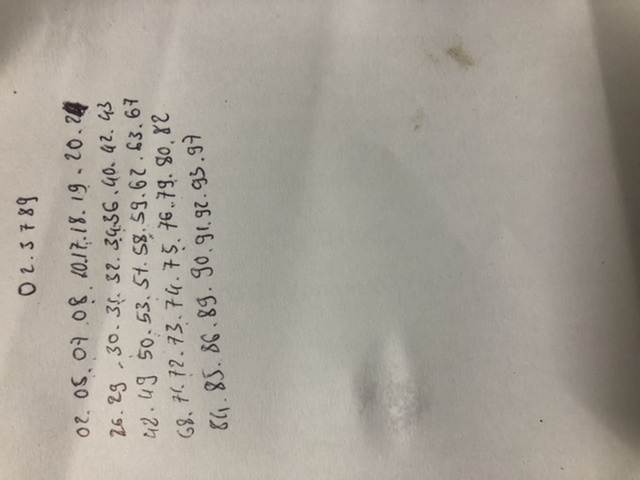 02.3789
02.05.07.08.10.17.18.19.20.21
26.29.30.31.32.34.36.40.42.43
42.49 50.53.51.58.59.62.63.67
68.71.72.73.74.75.76.79.80.82
84.85.86.89.90.91.92.93.97